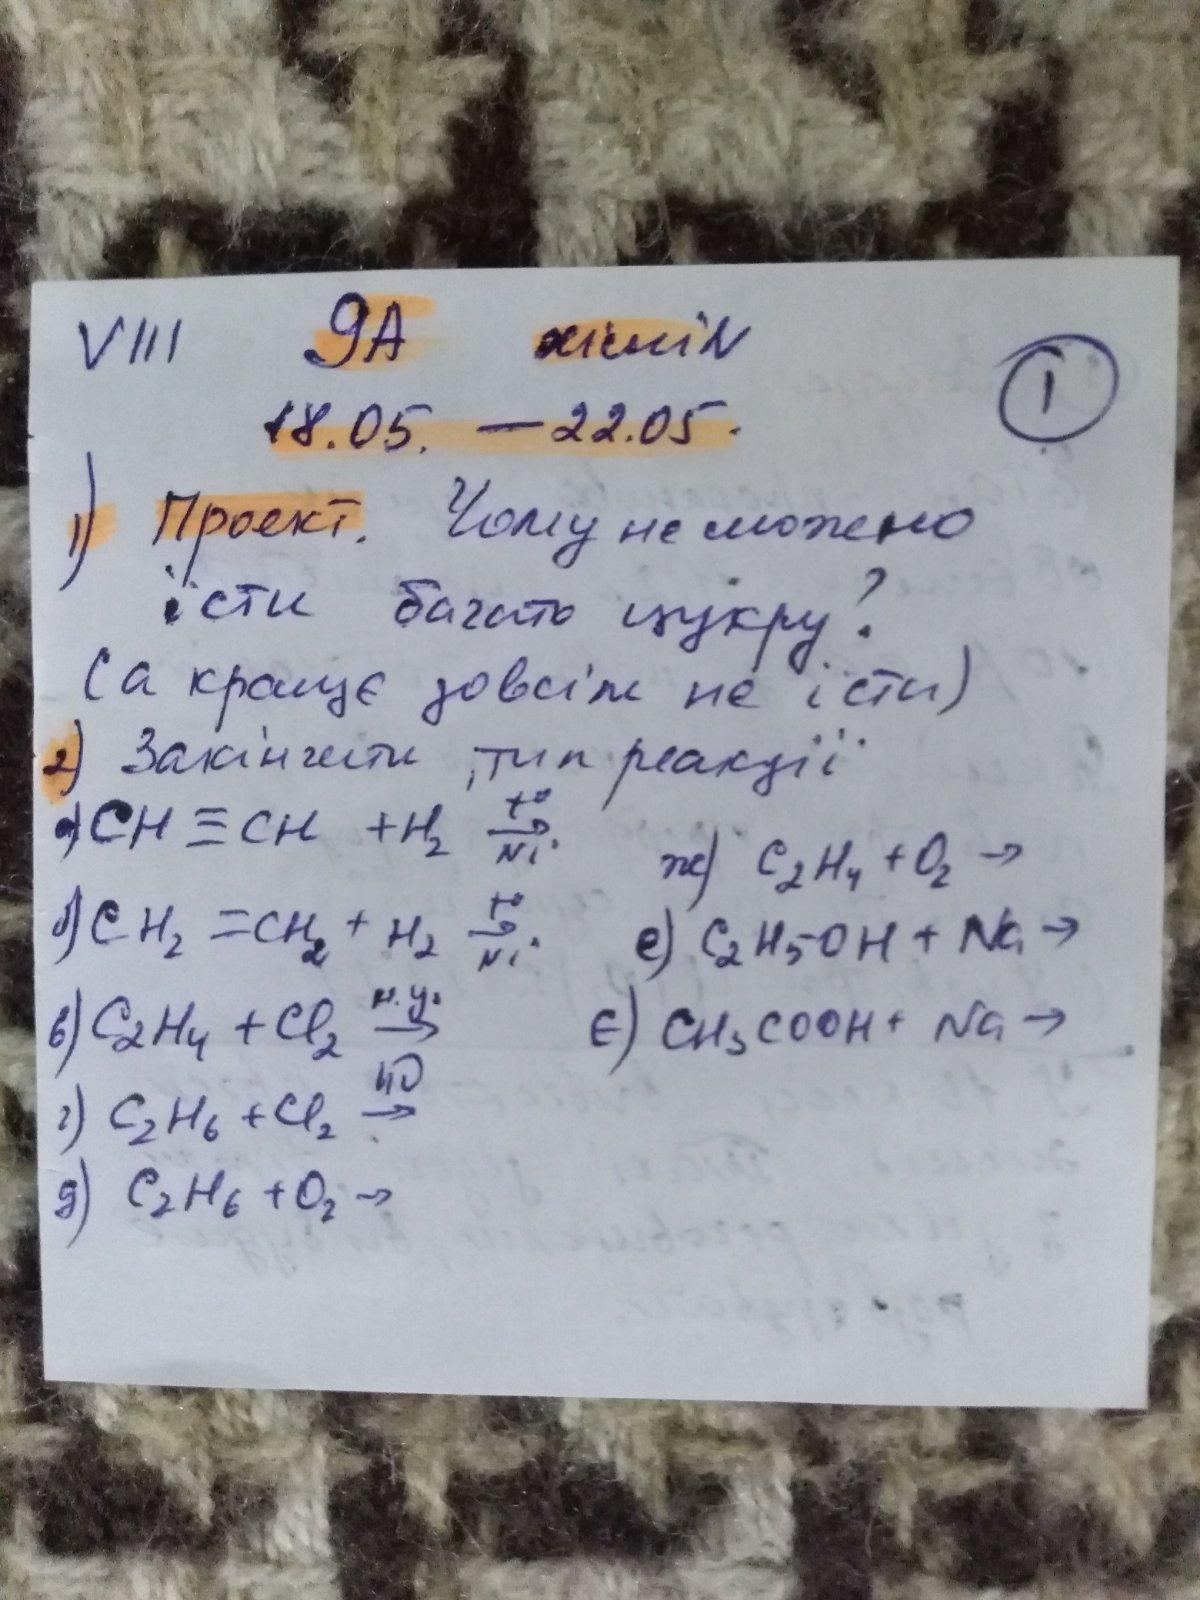 VIII 9А хімія 1
18.05. — 22.05.
1) Проект. Чому не можено
їсти багато цукру?
(а краще зовсім не їсти)
2) Закінчити, тип реакції
а) CH ≡ CH + H₂ →(t°, Ni)
б) CH₂ = CH₂ + H₂ →(t°, Ni)
в) C₂H₄ + Cl₂ →(н.у.)
г) C₂H₆ + Cl₂ →(hυ)
д) C₂H₆ + O₂ →
ж) C₂H₄ + O₂ →
е) C₂H₅OH + Na →
є) CH₃COOH + Na →